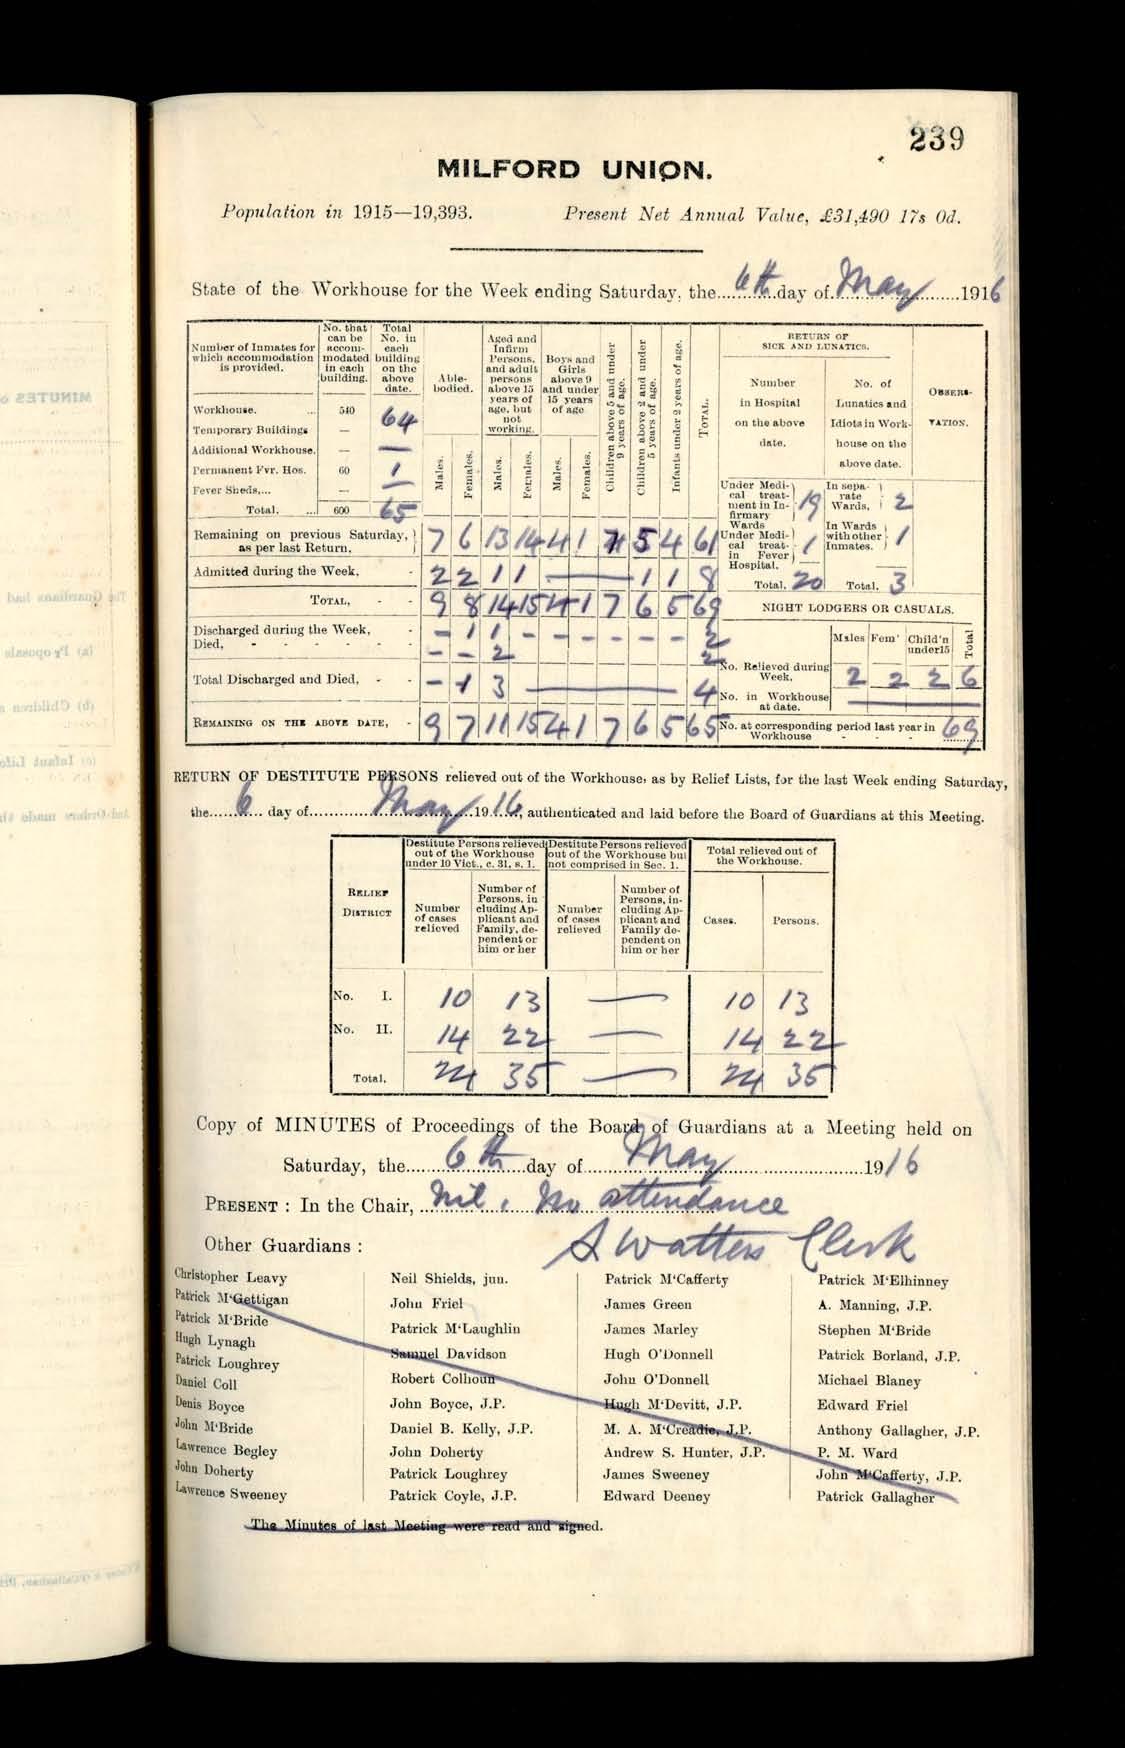 239
MILFORD UNION.
Population in 1915—19,393. Present Net Annual Value, £31,490 17s 0d.
State of the Workhouse for the Week ending Saturday, the 6th day of May 1916
Number of Inmates for which accommodation is provided.
No. that can be accom-modated in each building.
Total No. in each building on the above date.
Workhouse. ... 540 64
Temporary Buildings —
Additional Workhouse. — —
Permanent Fvr. Hos. 60 1
Fever Sheds,... — —
Total. ... 600 65
Able-bodied.
Aged and Infirm Persons, and adult persons above 15 years of age, but not working.
Boys and Girls above 9 and under 15 years of age
Children above 5 and under 9 years of age.
Children above 2 and under 5 years of age.
Infants under 2 years of age.
TOTAL.
Males. Females. Males. Females. Males. Females.
Remaining on previous Saturday, as per last Return, 7 6 13 14 4 1 7 5 4 61
Admitted during the Week, - 2 2 1 1 — 1 1 8
TOTAL, - - 9 8 14 15 4 1 7 6 5 69
Discharged during the Week, - – 1 1 – – – – – – 2
Died, - - - - - - – – 2 2
Total Discharged and Died, - - – 1 3 — 4
REMAINING ON THE ABOVE DATE, - 9 7 11 15 4 1 7 6 5 65
RETURN OF SICK AND LUNATICS.
Number in Hospital on the above date.
No. of Lunatics and Idiots in Work-house on the above date.
OBSERVATION.
Under Medi-cal treat-ment in In-firmary Wards 19
In sepa-rate Wards, 2
Under Medi-cal treat-in Fever Hospital. 1
In Wards with other Inmates. 1
Total. 20 Total. 3
NIGHT LODGERS OR CASUALS.
Males Fem' Child'n under15 Total
No. Relieved during Week, 2 2 2 6
No. in Workhouse at date. —
No. at corresponding period last year in Workhouse - - - 69
RETURN OF DESTITUTE PERSONS relieved out of the Workhouse, as by Relief Lists, for the last Week ending Saturday,
the 6 day of May 1916, authenticated and laid before the Board of Guardians at this Meeting.
RELIEF DISTRICT
Destitute Persons relieved out of the Workhouse under 10 Vict., c. 31, s. 1.
Destitute Persons relieved out of the Workhouse but not comprised in Sec. 1.
Total relieved out of the Workhouse.
Number of cases relieved
Number of Persons, in cluding Ap-plicant and Family, de-pendent or him or her
Number of cases relieved
Number of Persons, in-cluding Ap-plicant and Family de-pendent on him or her
Cases. Persons.
No. I. 10 13 — 10 13
No. II. 14 22 — 14 22
Total. 24 35 — 24 35
Copy of MINUTES of Proceedings of the Board of Guardians at a Meeting held on
Saturday, the 6th day of May 1916
PRESENT : In the Chair, Nil. No attendance
Other Guardians : S Watters Clerk
Christopher Leavy
Patrick M'Gettigan
Patrick M'Bride
Hugh Lynagh
Patrick Loughrey
Daniel Coll
Denis Boyce
John M'Bride
Lawrence Begley
John Doherty
Lawrence Sweeney
Neil Shields, jun.
John Friel
Patrick M'Laughlin
Samuel Davidson
Robert Colhoun
John Boyce, J.P.
Daniel B. Kelly, J.P.
John Doherty
Patrick Loughrey
Patrick Coyle, J.P.
Patrick M'Cafferty
James Green
James Marley
Hugh O'Donnell
John O'Donnell
Hugh M'Devitt, J.P.
M. A. M'Creadie, J.P.
Andrew S. Hunter, J.P.
James Sweeney
Edward Deeney
Patrick M'Elhinney
A. Manning, J.P.
Stephen M'Bride
Patrick Borland, J.P.
Michael Blaney
Edward Friel
Anthony Gallagher, J.P.
P. M. Ward
John M'Cafferty, J.P.
Patrick Gallagher
The Minutes of last Meeting were read and signed.